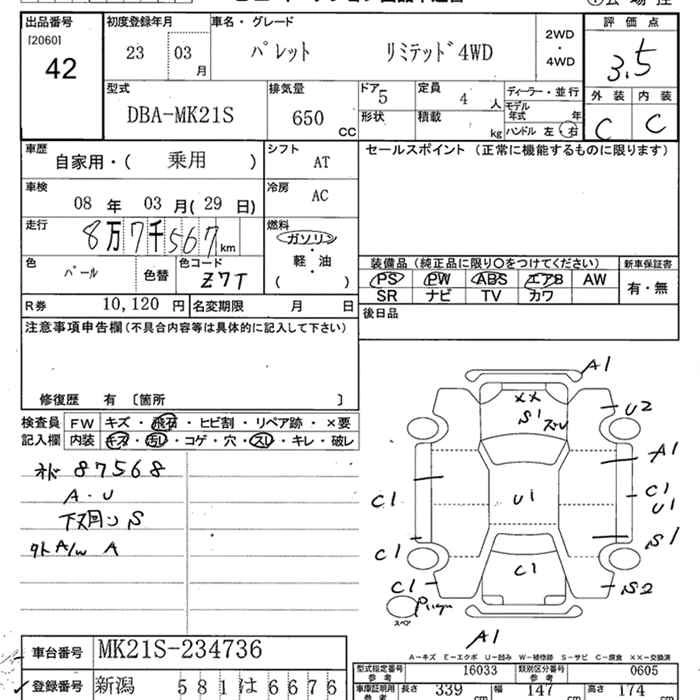 出品番号 初度登録年月 車名・グレード 評価点
[2060] 23 03 月 パレット リミテッド 4WD 2WD ・ 4WD 3.5
42
外装 内装
C C
型式 排気量 ドア 定員 ディーラー・並行
DBA-MK21S 650 CC 5 4 人 モデル年式 年
形状 積載 kg ハンドル 左 右
車歴 シフト セールスポイント (正常に機能するものに限ります)
自家用・( 乗用 ) AT
車検 冷房
08 年 03 月( 29 日) AC
走行 燃料
8万7千567 km ガソリン
・
軽・油
( )
色 色替 色コード
パール Z7T
装備品 (純正品に限り○をつけてください) 新車保証書
PS PW ABS エアB AW 有・無
SR ナビ TV カワ
R券 10,120 円 名変期限 月 日 後日品
注意事項申告欄(不具合内容等は具体的に記入して下さい)
修復歴 有 〔箇所 〕
検査員 FW キズ・飛石・ヒビ割・リペア跡・×要
記入欄 内装 キズ・汚レ・コゲ・穴・スレ・キレ・破レ
87568
A・U
S
外A/W A
A1
××
S1
U2
A1
C1 U1 C1
U1
S1
C1 C1
C1 S2
スペア
A1
A－キズ E－エクボ U－凹み W－補修跡 S－サビ C－腐食 ××－交換済
車台番号 MK21S-234736
型式指定番号 参考 16033 類別区分番号 参考 0605
登録番号 新潟 581 は 6676
車庫証明用 参考 長さ 339 cm 幅 147 cm 高さ 174 cm